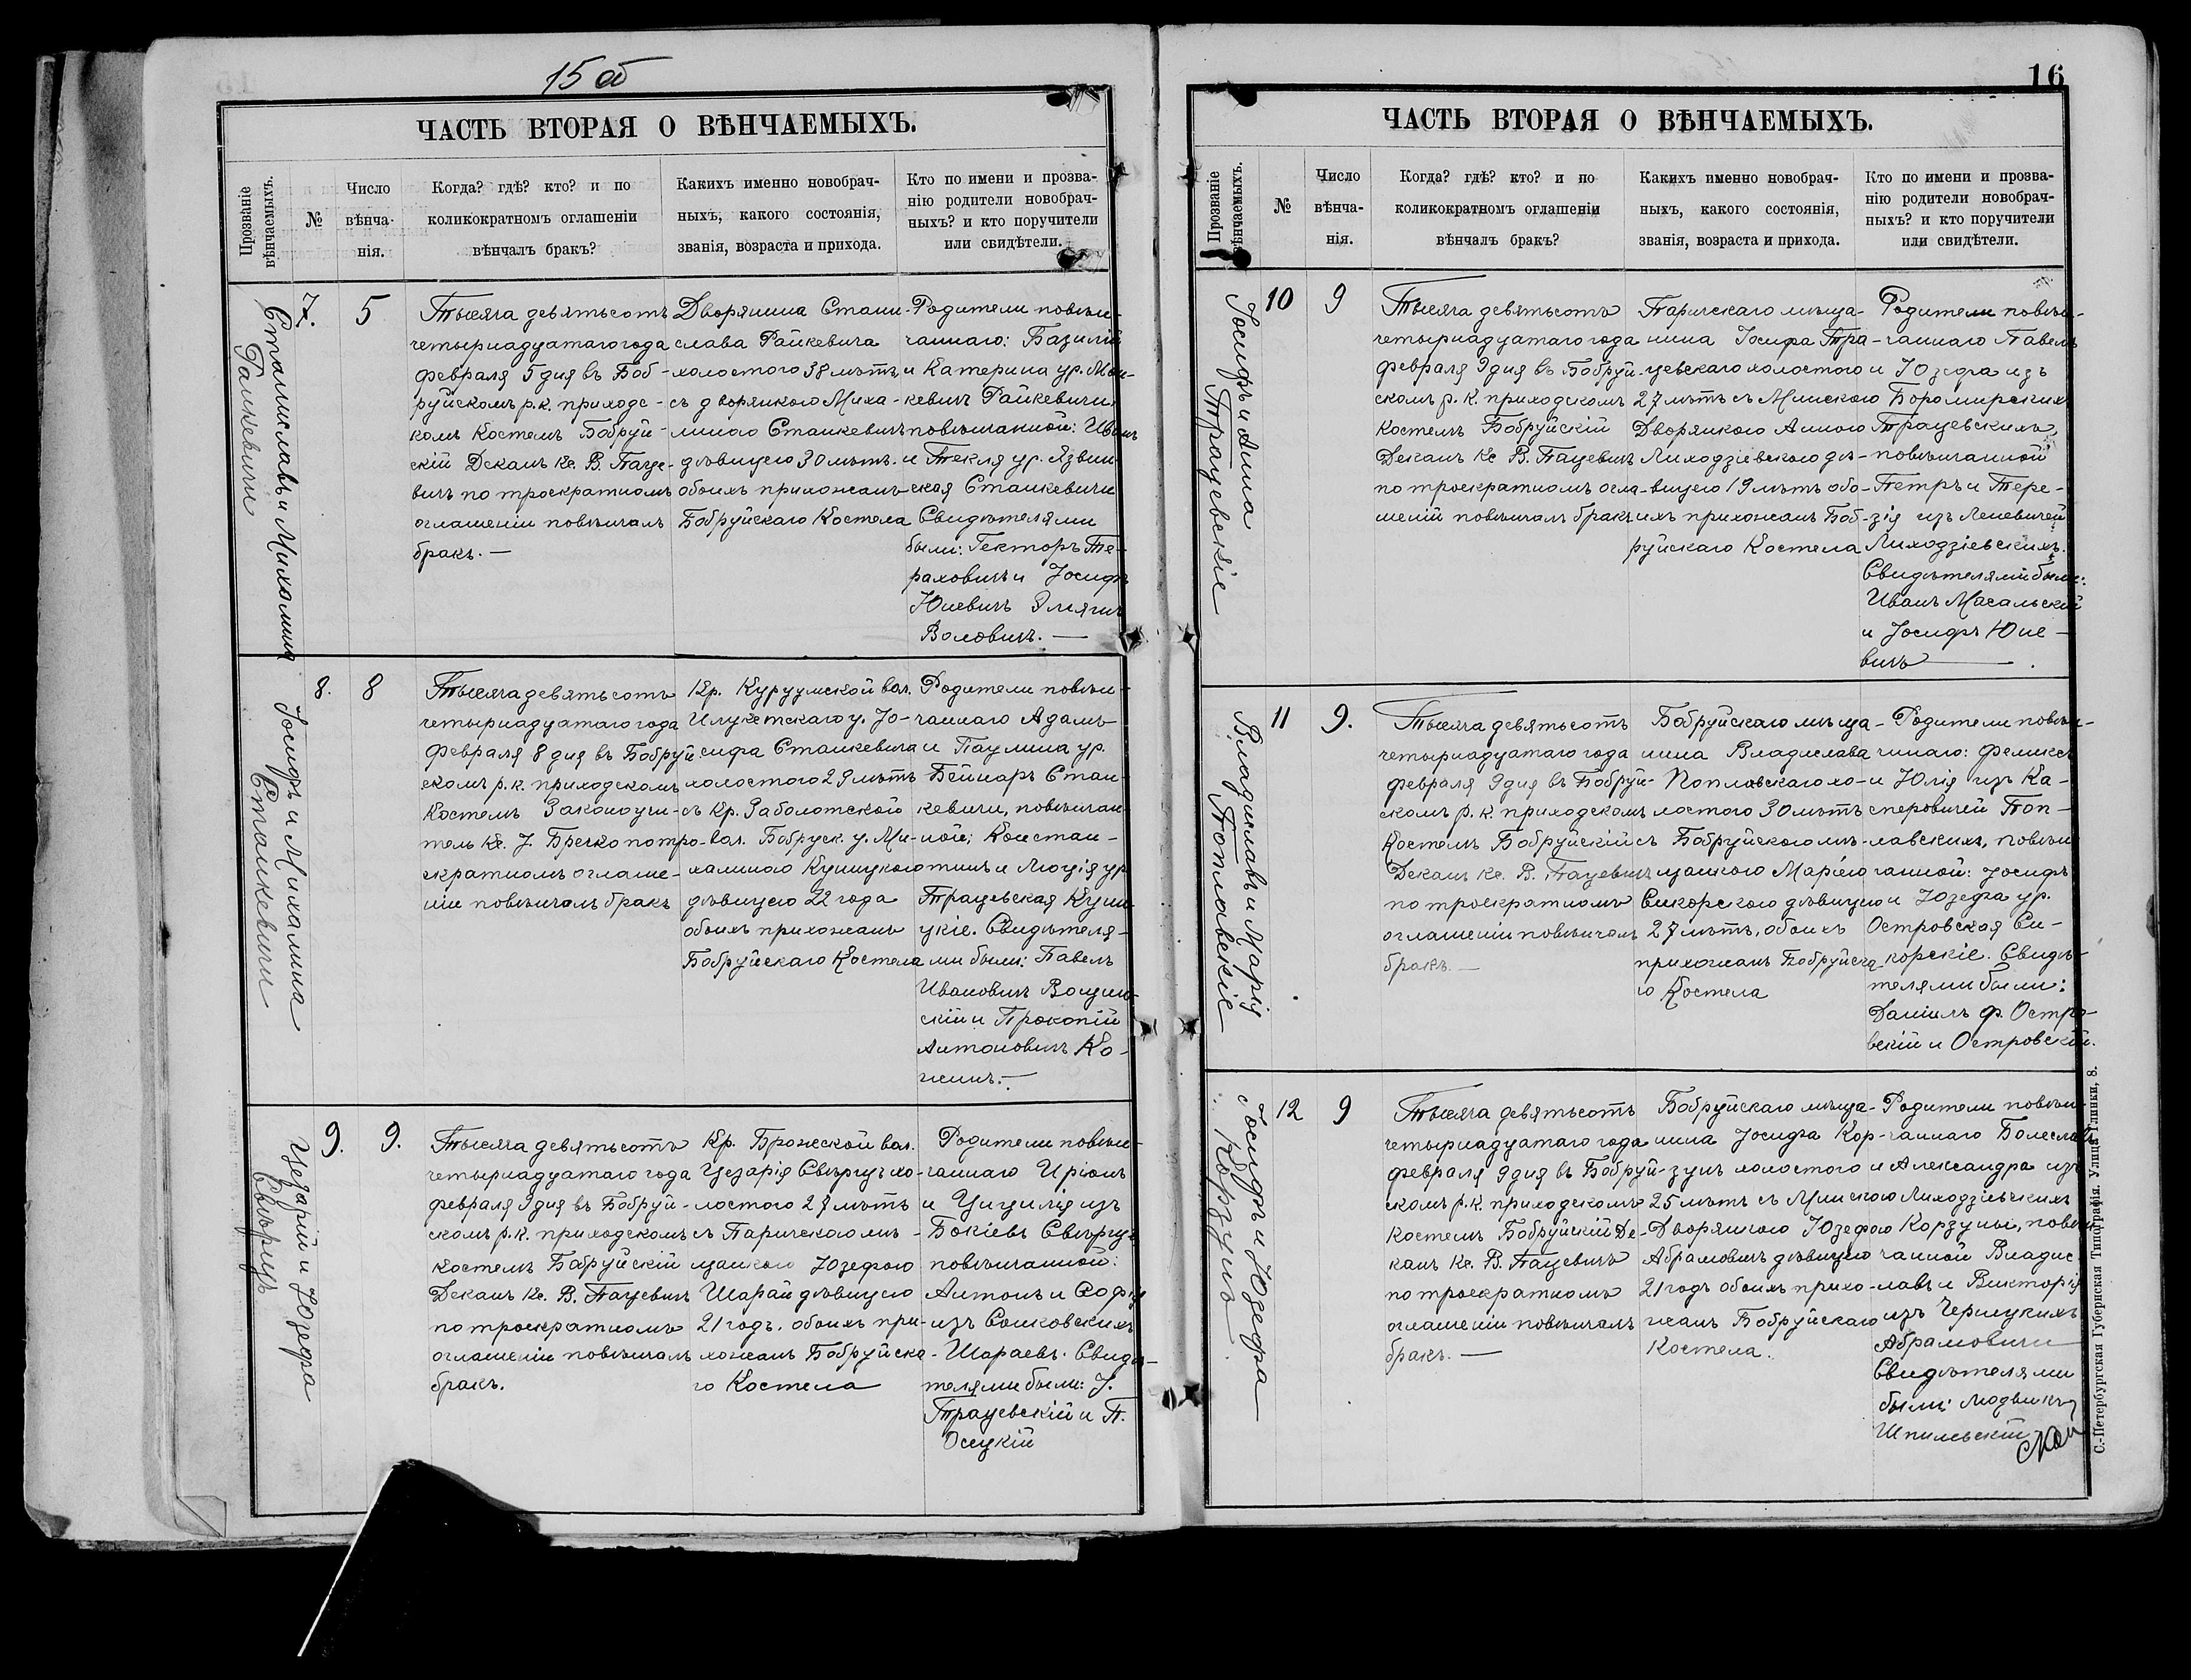 15 об
ЧАСТЬ ВТОРАЯ О ВѢНЧАЕМЫХЪ.
Прозваніе
вѣнчаемыхъ.
№
Число
вѣнча-
нія.
Когда? гдѣ? кто? и по
коликократномъ оглашеніи
вѣнчалъ бракъ?
Какихъ именно новобрач-
ныхъ, какого состоянія,
званія, возраста и прихода.
Кто по имени и прозва-
нію родители новобрач-
ныхъ? и кто поручители
или свидѣтели.
Станиславъ и Михалина
Райкевичи
7.
5
Тысяча девятьсотъ
четырнадцатаго года
февраля 5 дня въ Боб-
руйскомъ р.к. приходс-
комъ Костелѣ Бобруй-
скій Деканъ Кс. В. Паце-
вичъ по троекратномъ
оглашеніи повѣнчалъ
бракъ. —
Дворянина Стани-
слава Райкевича
холостого 38 лѣтъ
съ дворянкою Миха-
линою Станкевичъ
дѣвицею 30 лѣтъ.
обоихъ прихожанъ
Бобруйскаго Костела
Родители повѣн-
чаннаго: Базилій
и Катерина ур.
кевичъ Райкевичи,
повѣнчанной: Иванъ
и Текля ур. Язвин-
ская Станкевичи
Свидѣтелями
были: Гекторъ Те-
раховичъ и Іосифъ
Юневичъ
Воловичъ. —
Іосифъ и Михалина
Станкевичи
8.
8
Тысяча девятьсотъ
четырнадцатаго года
февраля 8 дня въ Бобруй-
скомъ р.к. приходскомъ
Костелѣ Законоучи-
тель Кс. І. Бречко по трое-
кратномъ оглаше-
ніи повѣнчалъ бракъ
Кр. Курцумской вол.
Илукстскаго у. Іо-
сифа Станкевича
холостого 29 лѣтъ
съ Кр. Заболотской
вол. Бобруск. у. Ми-
халиною Куницкою
дѣвицею 22 года
обоихъ прихожанъ
Бобруйскаго Костела
Родители повѣн-
чаннаго Адамъ
и Паулина ур.
Бейнаръ Стан-
кевичи, повѣнчан-
ной: Констан-
тинъ и Люція ур.
Трацевская Куни-
цкіе. Свидѣтеля-
ми были: Павелъ
Ивановичъ Волын-
скій и Прокопій
Антоновичъ Ко-
жичъ. —
Цезарій и Юзефа
Свѣрщъ
9.
9.
Тысяча девятьсотъ
четырнадцатаго года
февраля 9 дня въ Бобруй-
скомъ р.к. приходскомъ
костелѣ Бобруйскій
Деканъ Кс. В. Пацевичъ
по троекратномъ
оглашеніи повѣнчалъ
бракъ.
Кр. Брожской вол.
Цезарія Свѣрщъ хо-
лостого 27 лѣтъ
съ Паричскою мѣ-
щанкою Юзефою
Шарай дѣвицею
21 годъ. обоихъ при-
хожанъ Бобруйска-
го Костела
Родители повѣн-
чаннаго Иріонъ
и Цицилія изъ
Бокіевъ Свѣрщъ
повѣнчанной:
Антонъ и Софія
изъ Сенковскихъ
Шараевъ. Свидѣ-
телями были: І.
Трацевскій и П.
Осецкій
16
ЧАСТЬ ВТОРАЯ О ВѢНЧАЕМЫХЪ.
Прозваніе
вѣнчаемыхъ.
№
Число
вѣнча-
нія.
Когда? гдѣ? кто? и по
коликократномъ оглашеніи
вѣнчалъ бракъ?
Какихъ именно новобрач-
ныхъ, какого состоянія,
званія, возраста и прихода.
Кто по имени и прозва-
нію родители новобрач-
ныхъ? и кто поручители
или свидѣтели.
Іосифъ и Анна
Трацевскіе
10
9
Тысяча девятьсотъ
четырнадцатаго года
февраля 9 дня въ Бобруй-
скомъ р.к. приходскомъ
костелѣ Бобруйскій
Деканъ Кс В. Пацевичъ
по троекратномъ огла-
шеній повѣнчалъ бракъ
Паричскаго мѣща-
нина Іосифа Тра-
цевскаго холостого
27 лѣтъ съ Минскою
Дворянкою Анною
Лиходзіевскою дѣ-
вицею 19 лѣтъ обо-
ихъ прихожанъ Боб-
руйскаго Костела
Родители повѣн-
чаннаго Павелъ
и Юзефа изъ
Боромирскихъ
Трацевскихъ,
повѣнчанной
Петръ и Тере-
зія изъ Леневичей
Лиходзіевскихъ.
Свидѣтелями были:
Иванъ Масальскій
и Іосифъ Юне-
вичъ — .
Владиславъ и Марія
Поплавскіе
11
9.
Тысяча девятьсотъ
четырнадцатаго года
февраля 9 дня въ Бобруй-
скомъ р.к. приходскомъ
Костелѣ Бобруйскій
Деканъ Кс. В. Пацевичъ
по троекратномъ
оглашеніи повѣнчалъ
бракъ. —
Бобруйскаго мѣща-
нина Владислава
Поплавскаго хо-
лостого 30 лѣтъ
съ Бобруйскою мѣ-
щанкою Маріею
Сикорскою дѣвицею
27 лѣтъ, обоихъ
прихожанъ Бобруйска-
го Костела
Родители повѣн-
чннаго: Феликсъ
и Юлія изъ Ка-
сперовичей Поп-
лавскихъ, повѣн-
чанной: Іосифъ
и Юзефа ур.
Островская Си-
корскіе. Свидѣ-
телями были:
Даніилъ ф. Остро-
вскій и Островскій.
Іосифъ и Юзефа
Корзунъ.
12
9
Тысяча девятьсотъ
четырнадцатаго года
февраля 9 дня въ Бобруй-
скомъ р.к. приходскомъ
костелѣ Бобруйскій Де-
канъ Кс. В. Пацевичъ
по троекратномъ
оглашеніи повѣнчалъ
бракъ. —
Бобруйскаго мѣща-
нина Іосифа Кор-
зунъ холостого
25 лѣтъ съ Минскою
Дворянкою Юзефою
Абрамовичъ дѣвицею
21 годъ обоихъ прихо-
жанъ Бобруйскаго
Костела.
Родители повѣн-
чаннаго Болеславъ
и Александра изъ
Лиходзіевскихъ
Корзуны, повѣн-
чанной Владис-
лавъ и Викторія
изъ Черницкихъ
Абрамовичи
Свидѣтелями
были: Людвикъ
Шпилевскій
С.-Петербургская Губернская Типографія. Улица Глинки, 8.